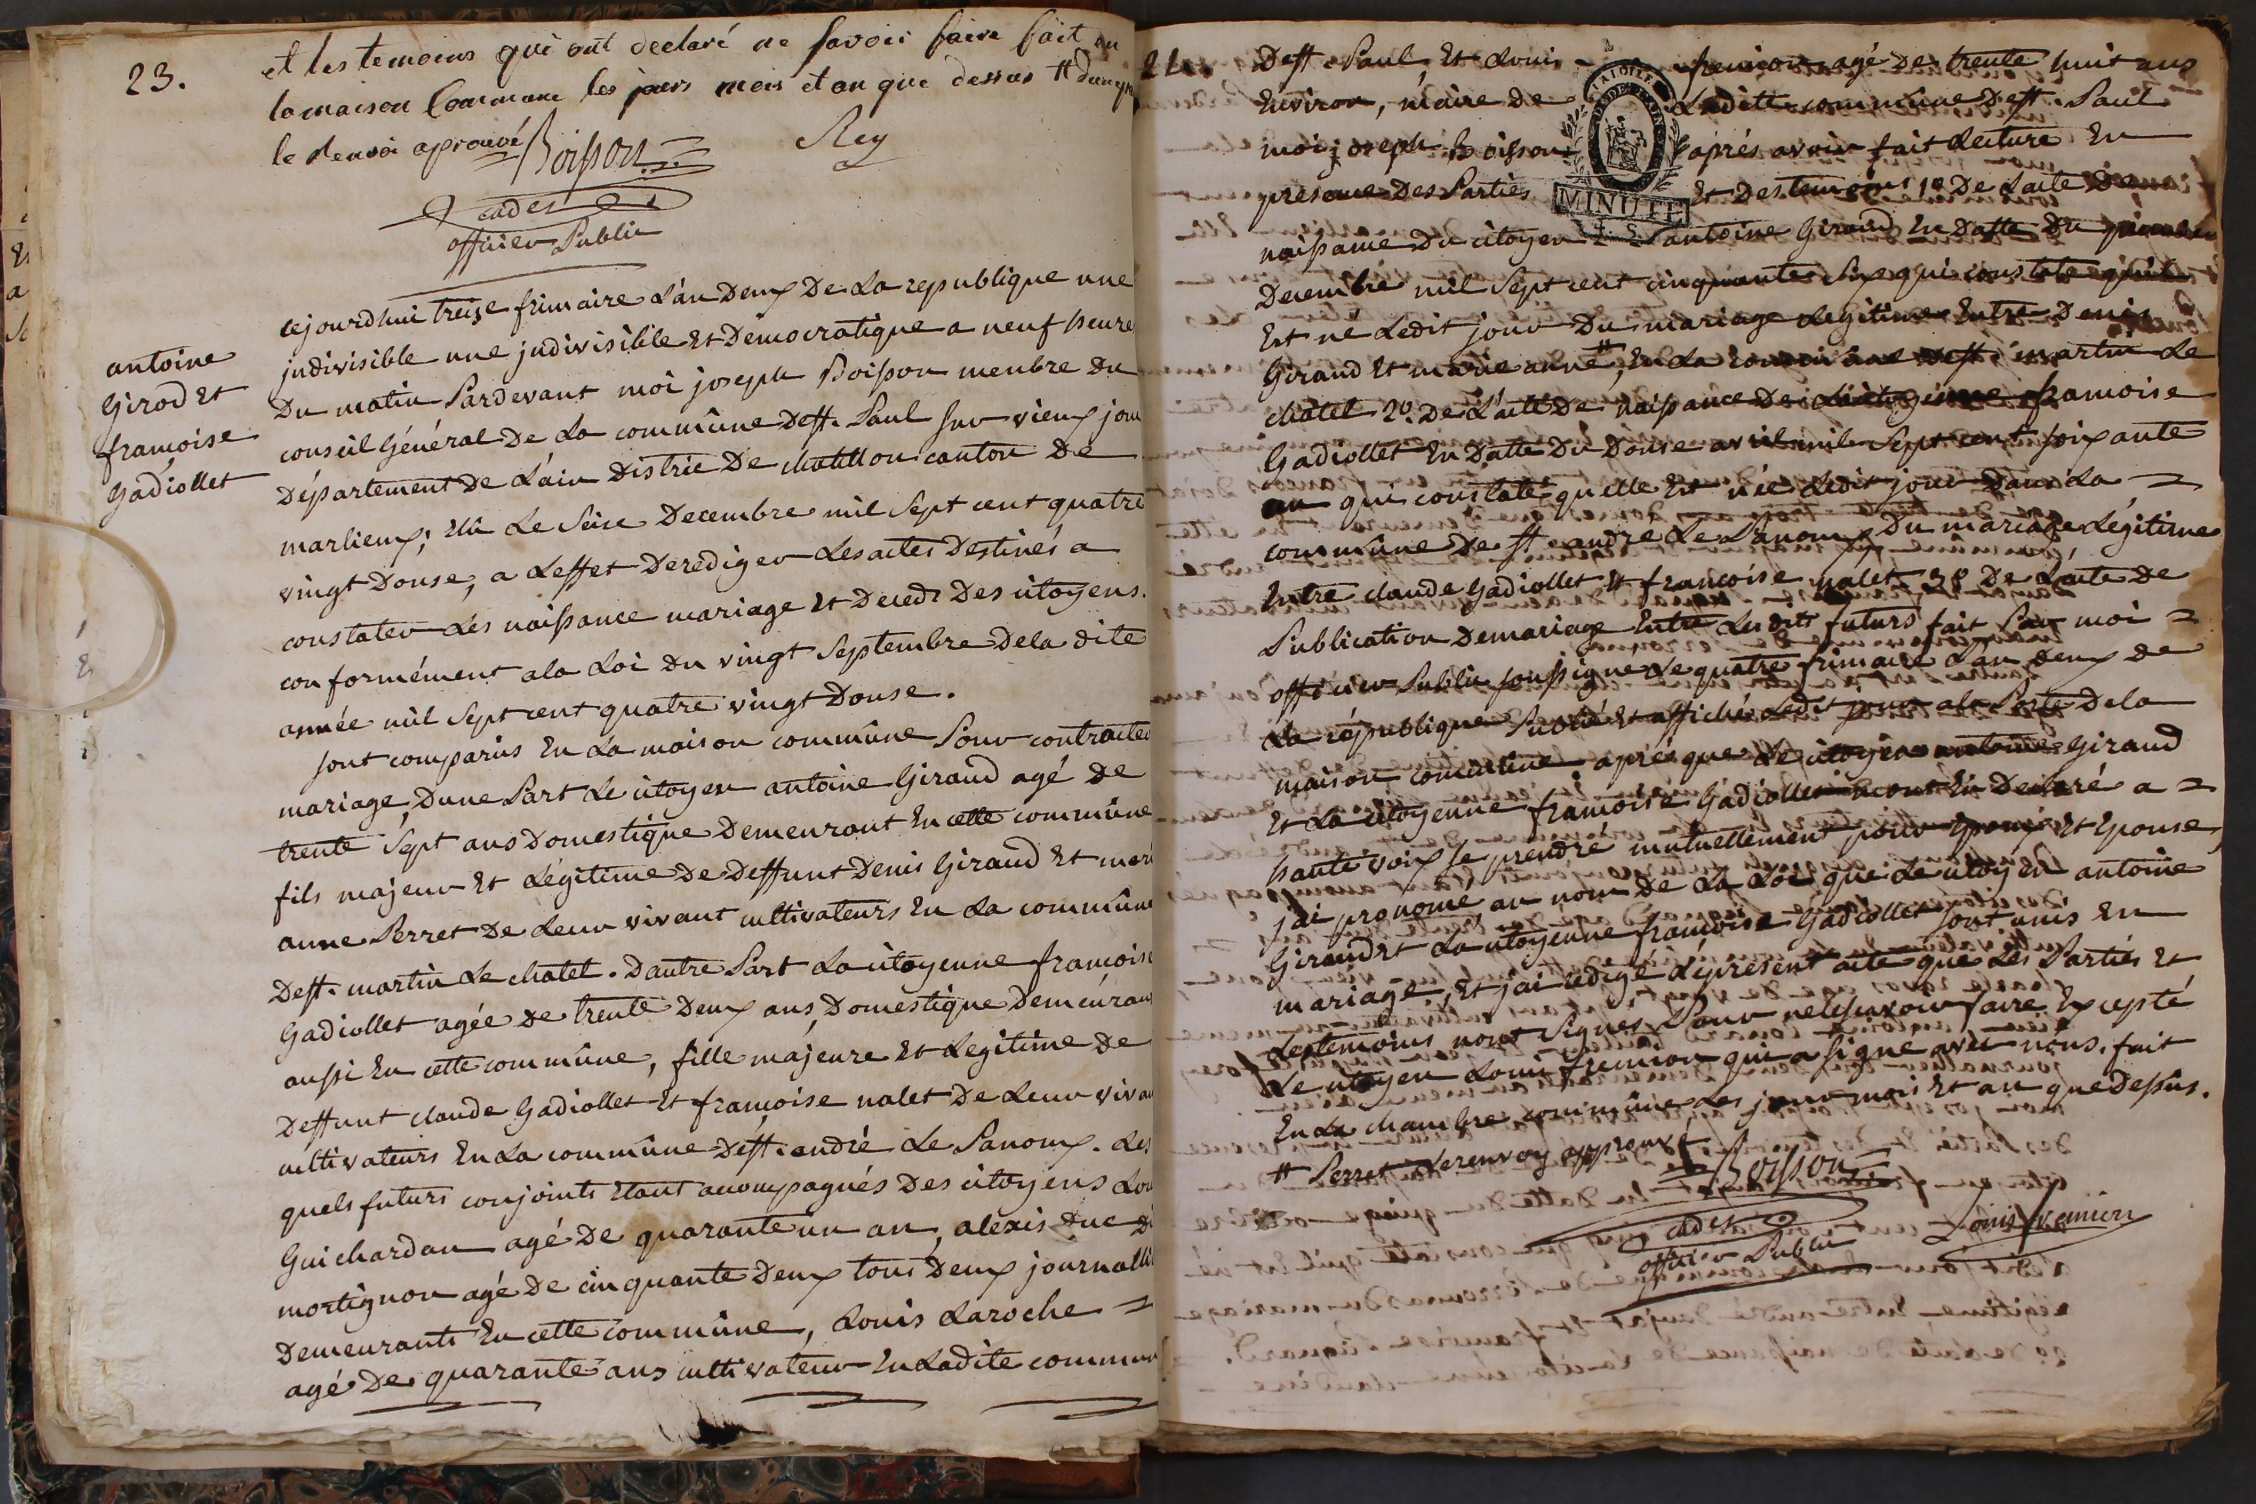 23.
et les temoins qui ont declaré ne savoir faire fait en
la maison Commune les jours mois et an que dessus #
le renvoi aprouvé Boisson Rey
cadet
officier Public
antoine
Girod Et
francoise
Gadiollet
cejourdhui treize frimaire L'an Deux De La republique une
jndivisible une jndivisible Et Democratique a neuf heure
Du matin Pardevant moi joseph Boisson menbre Du
conseil Général De La commûne Dest. Paul Sur vieux jon
Département De L'ain Distric De chatillon canton De
marlieux; élu Le Seise Decembre mil Sept cent quatre
vingt Douse, a Leffet Derediger Les actes Destinés a
constater Les naissance mariage Et Deceds Des citoyens.
conformément ala Loi Du vingt Septembre Dela dite
année mil Sept cent quatre vingt Douse.
sont comparus En La maison commûne Pour contracter
mariage, Dune Part Le citoyen antoine Giraud agé De
trente Sept ans Domestique Demeurant En cette commûne
fils majeur Et Légitime De Deffunt Denis Giraud Et mari
anne Perret De Leur vivant cultivateurs En La commûne
Dest. martin Le chatel. Dautre Part La citoyenne francoise
Gadiollet agée De trente Deux ans, Domestique Demeurant
aussi En cette commûne, fille majeure Et Legitime De
Deffunt claude Gadiollet Et francoise nalet De Leur vivan
cultivateurs En La commûne Dest. andré Le Panoux. Les
quels futurs conjoints Etant acompagnés Des citoyens Lou
Guichardan agé De quarante un an, alexis Duc Di
mortignon agé De cinquante Deux tous Deux journalli
Demeurants En cette commûne, Louis Laroche =
agé De quarante ans cultivateur En Ladite commun
Dest. Paul, Et Louis fremion agé De trente huit ans
Environ, maire De Ladite commûne Dest. Paul
moi joseph Boisson aprés avoir fait Lecture En
presence Des Parties Et Des temoins 1º De Lacte De
naissance Du citoyen antoine Giraud En Datte Du premier
Decembre mil Sept cent cinquante Six qui constate qu'il
Est né Ledit jour Du mariage Legitime Entre Denis
Giraud Et marie anne #, En La commûne Dest. martin Le
châtel 2º. De L'acte De naissance De La citoyenne francoise
Gadiollet En Datte Du Douse avril mil Sept cent soixante
un qui constate quelle Est née Ledit jour Dans La =
commûne De st. andré Le Panoux, Du mariage Légitime
Entre claude Gadiollet Et francoise nalet 3º De L'acte De
Publication De mariage Entre Lesdits futurs fait Par moi =
officier Public soussigné Le quatre frimaire L'an Deux De
La république Publié Et affiché Ledit jour ala Porte Dela
maison commûne aprés que Le citoyen antoine Giraud
Et La citoyenne francoise Gadiollet ont Eu Declaré a =
haute voix se prendre mutuellement pour Epoux Et Epouse,
jai prononcé au nom De La Loi que Le citoyen antoine
Giraud Et La citoyenne francoise Gadiollet sont unis En
mariage, Et jai redigé Le present acte que Les Parties Et
Les temoins nont Signés Pour ne Scavoir faire Excepté
Le citoyen Louis fremion qui a signé avec nous. fait
En La chambre commûne Les jour mois Et an que Dessûs.
# Perret Le renvoy approuvé
Boisson
cadet
officier Public
Louis fremion
MINUTE